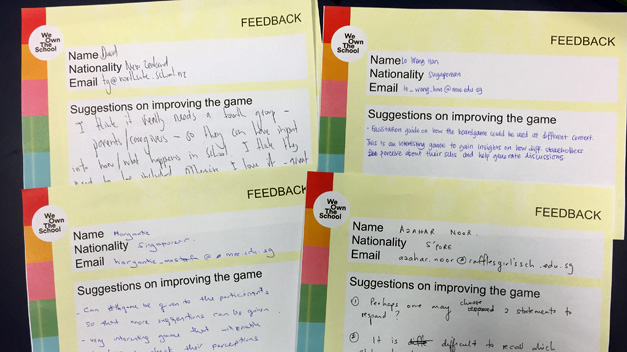 We
Own
The
School
FEEDBACK
Name David
Nationality New Zealand
Email
Suggestions on improving the game
I think it really needs a fourth group -
parents/caregivers - so they can have input
into how/what happens in school I think they
need to be included
I love it -
We
Own
The
School
FEEDBACK
Name Lo Wang Han
Nationality Singaporean
Email
Suggestions on improving the game
- Facilitation guide on how the boardgame could be used at different context.
This is an interesting game to gain insights on how diff. stakeholders
perceive about their roles and help generate discussions.
We
Own
The
School
FEEDBACK
Name
Nationality Singaporean
Email
Suggestions on improving the game
- Can be given to the participants
so that more suggestions can be given.
- very interesting game that
their perceptions
We
Own
The
School
FEEDBACK
Name AZAHAR NOOR.
Nationality S'PORE
Email azahar.noor@rafflesgirlssch.edu.sg
Suggestions on improving the game
① Perhaps one may choose 2 statements to
respond?
② It is difficult to recall which